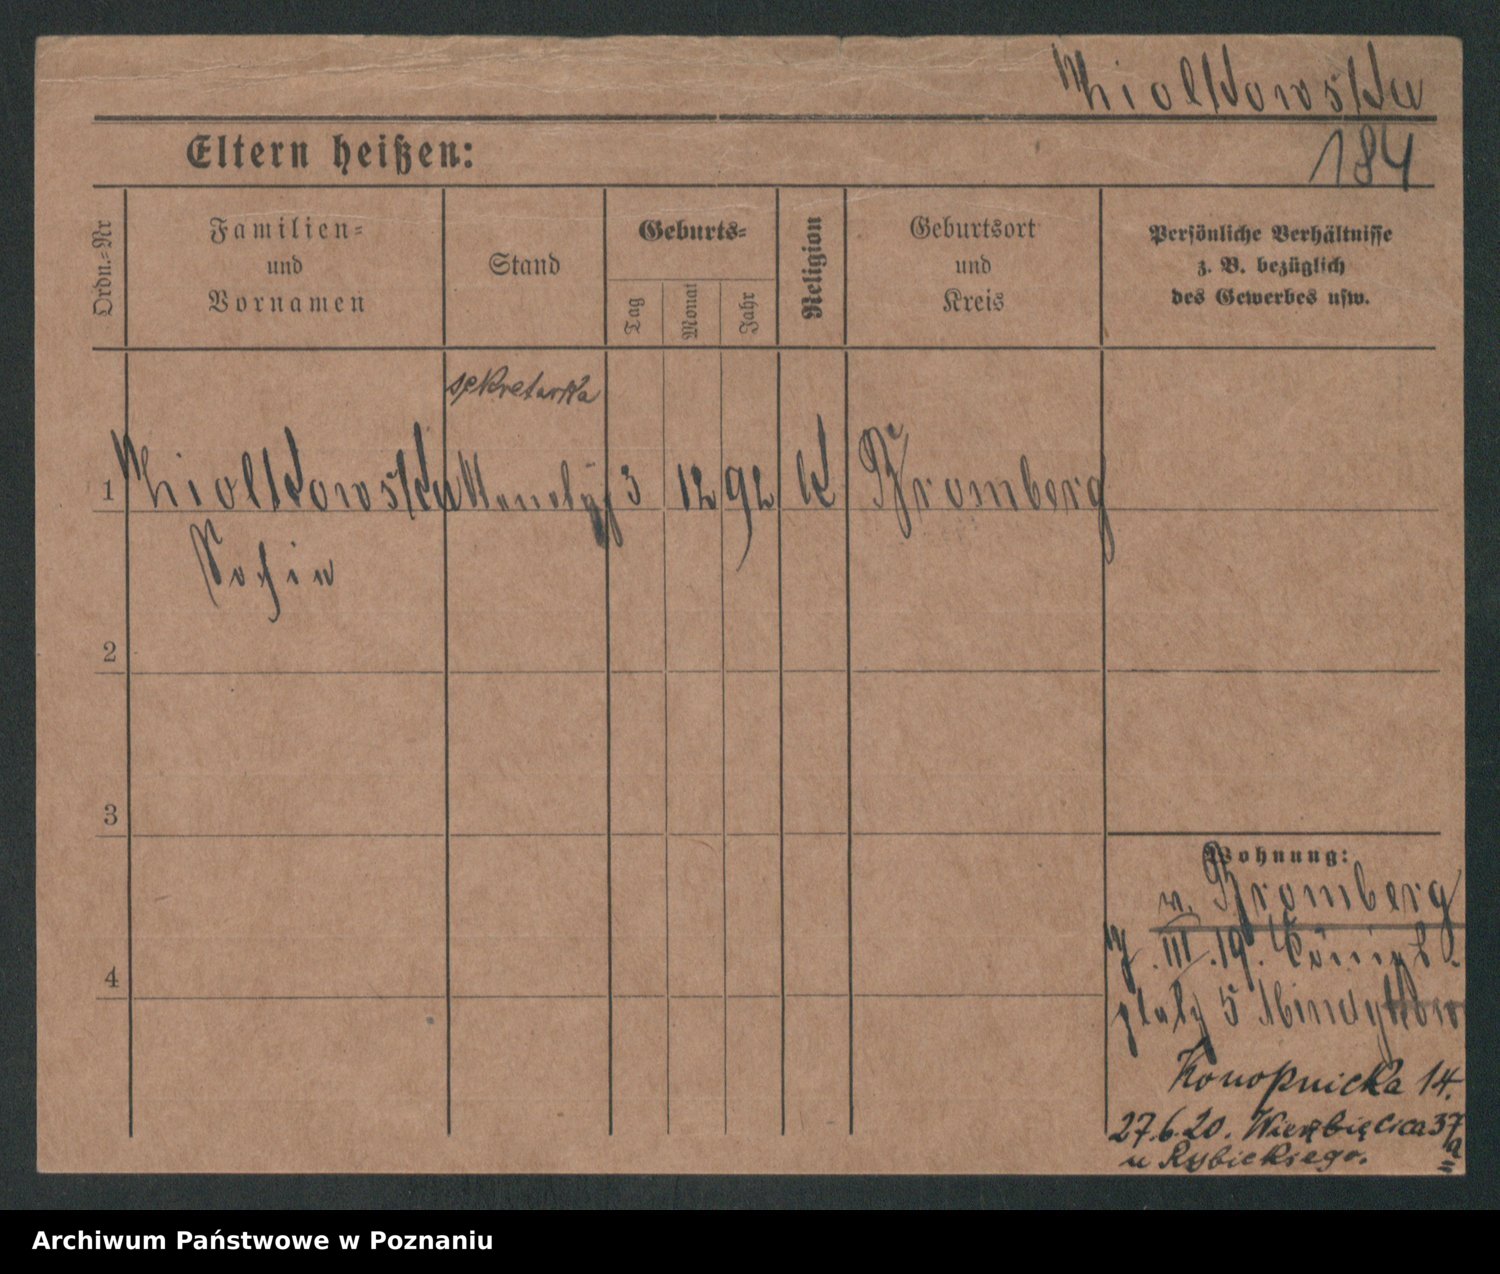 Ziolkowska
184
Eltern heißen:
Ordn.=Nr
Familien=
und
Vornamen
Stand
Geburts=
Tag
Monat
Jahr
Religion
Geburtsort
und
Kreis
Persönliche Verhältnisse
z. B. bezüglich
des Gewerbes usw.
sekretarka
1 Ziolkowska 3 12 92 K Bromberg
Sofia
2
3
4
Wohnung:
v. Bromberg
III.19. Königs-
platz 5
Konopnicka 14.
27.6.20. Wierzbięcica 37a
u Rybickiego.
Archiwum Państwowe w Poznaniu